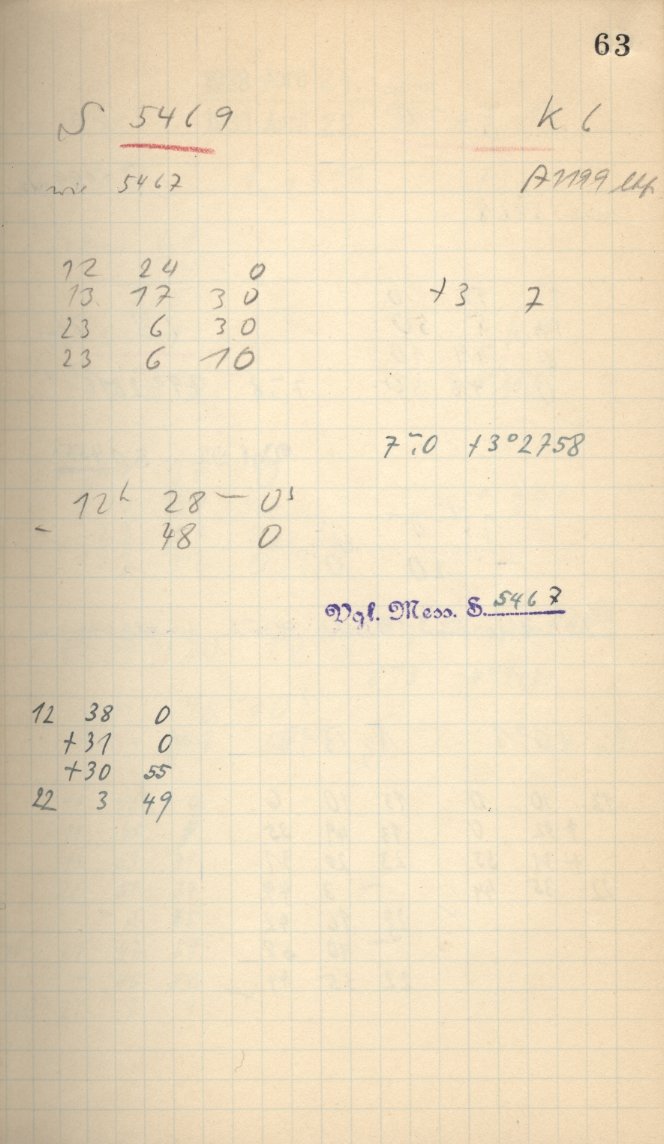 63
S 5469 K 6
wie 5467
12 24 0
13 17 30 +3 7
23 6 30
23 6 10
7.0 +3°2758
12h 28 — 0s
- 48 0
Vgl. Mess. S. 5467
12 38 0
+31 0
+30 55
22 3 49